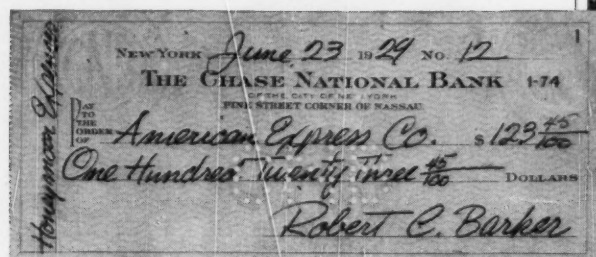 1
New York June 23 1929 No. 12
The Chase National Bank 1-74
OF THE CITY OF NEW YORK
PINE STREET CORNER OF NASSAU
PAY TO THE ORDER OF American Express Co. $ 123 45/100
One Hundred Twenty Three 45/100 Dollars
Robert C. Barker
Honeymoon Expenses